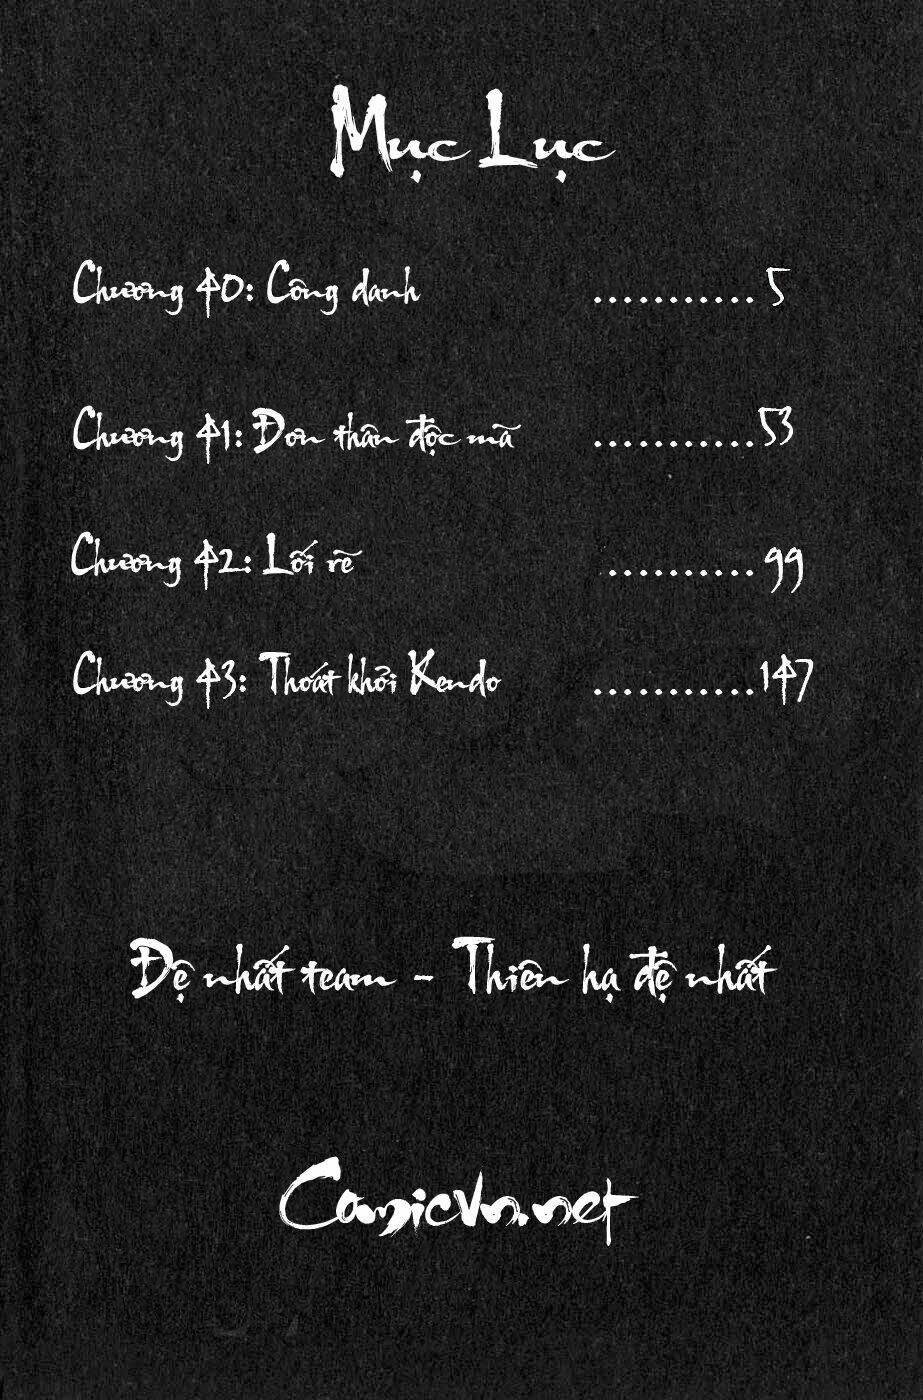 Mục Lục
Chương 40: Công danh ........... 5
Chương 41: Đơn thân độc mã ...........53
Chương 42: Lối rẽ .......... 99
Chương 43: Thoát khỏi Kendo ...........147
Đệ nhất team - Thiên hạ đệ nhất
Comicvn.net